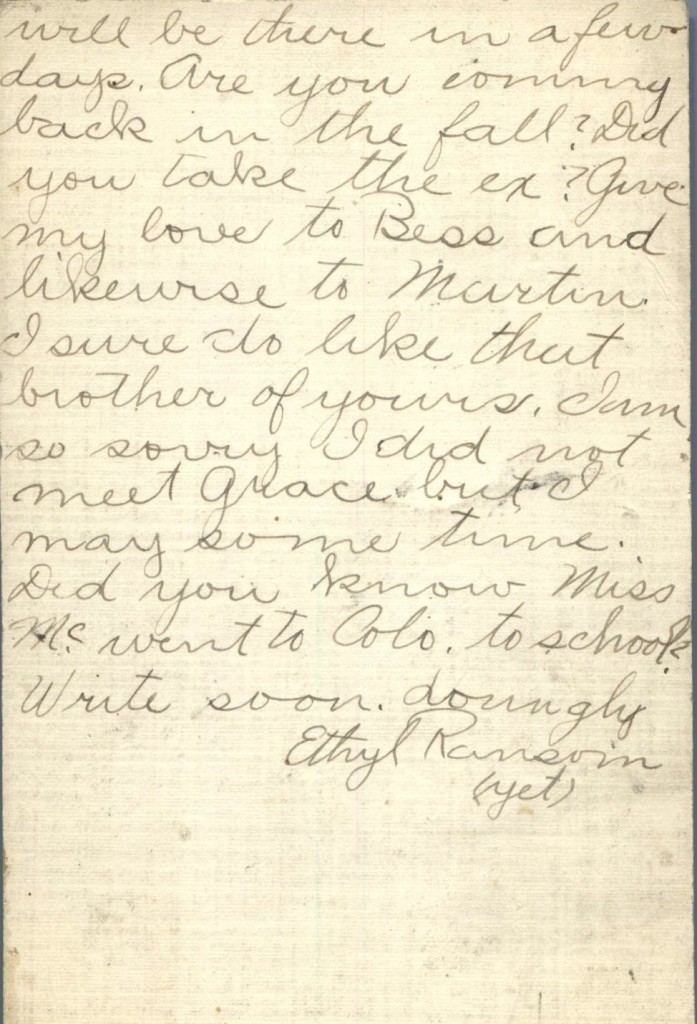 will be there in a few
days. Are you comming
back in the fall? Did
you take the ex? Give
my love to Bess and
likewise to Martin.
I sure do like that
brother of yours. I am
so sorry I did not
meet Grace but I
may some time.
Did you know Miss
Mc went to Colo. to school?
Write soon. Lovingly
Ethyl Ransom
(yet)